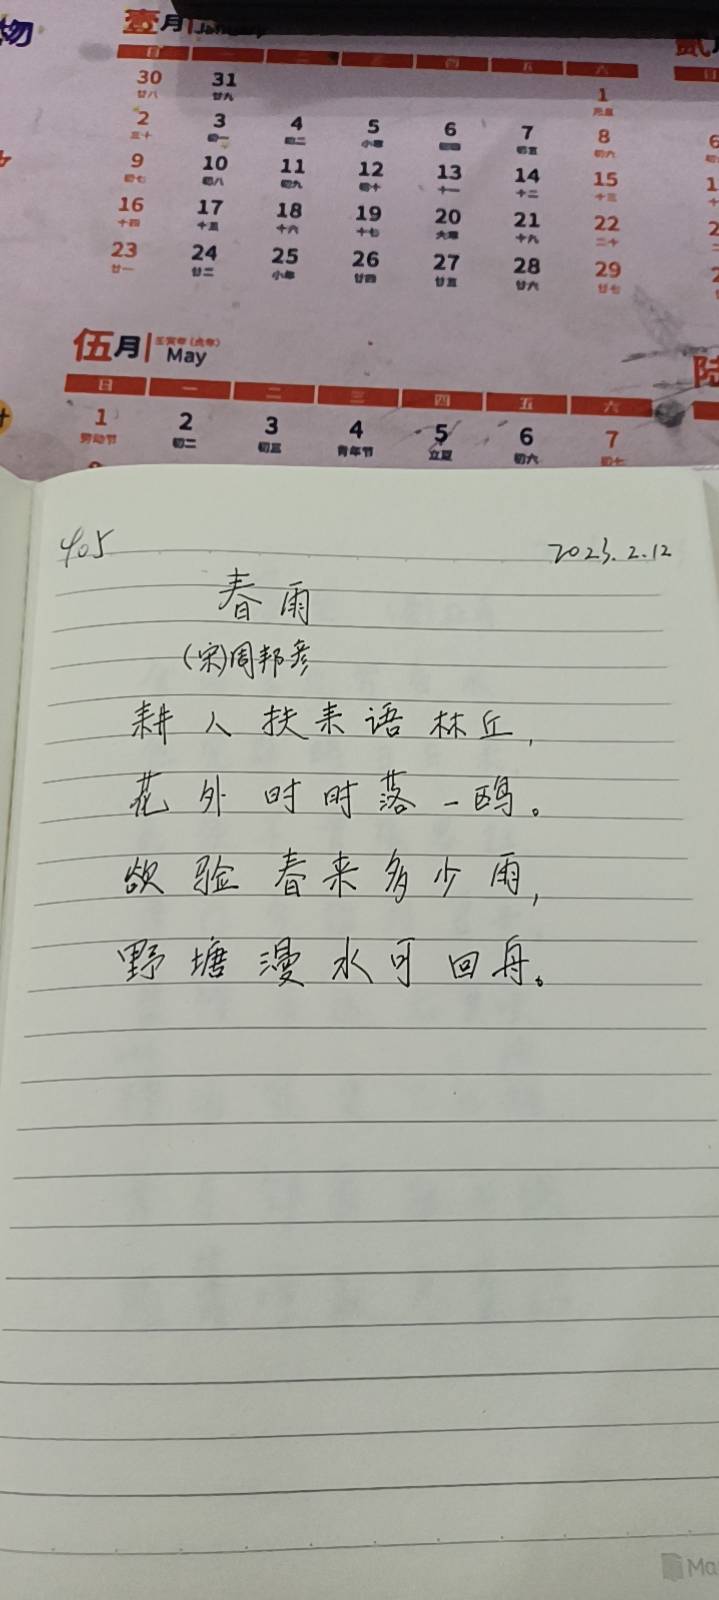 物
壹月 January
贰
日 一 二 三 四 五 六
30 31 1
廿八 廿九 元旦
2 3 4 5 6 7 8
三十 初一 初二 小寒 初四 初五 初六
9 10 11 12 13 14 15
初七 初八 初九 初十 十一 十二 十三
16 17 18 19 20 21 22
十四 十五 十六 十七 大寒 十九 二十
23 24 25 26 27 28 29
廿一 廿二 小年 廿四 廿五 廿六 廿七
伍月 壬寅年(虎年)
May
陆
日 一 二 三 四 五 六
1 2 3 4 5 6 7
劳动节 初二 初三 青年节 立夏 初六 初七
405 2023.2.12
春雨
(宋)周邦彦
耕人扶耒语林丘,
花外时时落一鸥。
欲验春来多少雨,
野塘漫水可回舟。
Ma